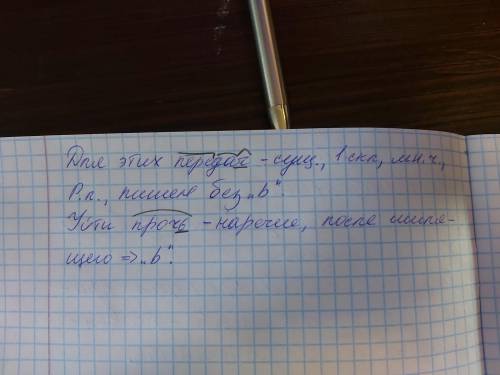 Для этих передач - сущ., 1 скл., мн.ч.,
Р.п., пишем без „ь“.
Уйти прочь - наречие, после шипя-
щего => „ь“.